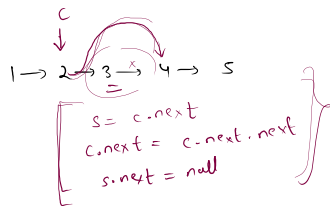 C
x
1 → 2 → 3 → 4 → 5
s = c.next
c.next = c.next.next
s.next = null